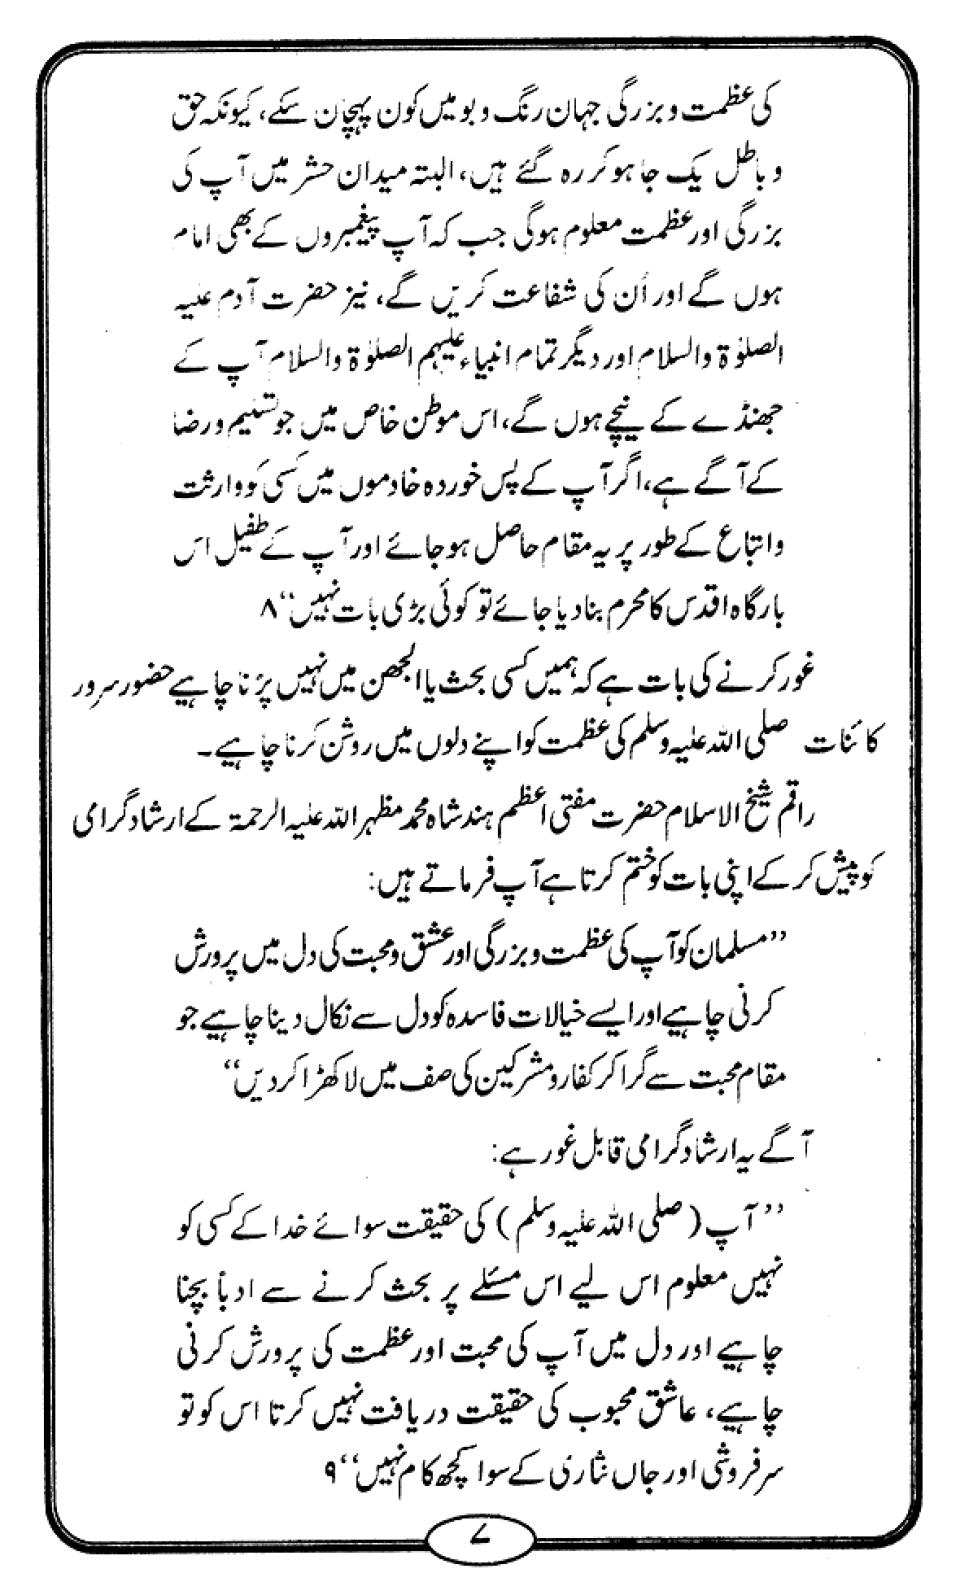 کی عظمت و بزرگی جہان رنگ و بو میں کون پہچان سکے، کیونکہ حق
و باطل یک جا ہو کر رہ گئے ہیں، البتہ میدان حشر میں آپ کی
بزرگی اور عظمت معلوم ہوگی جب کہ آپ پیغمبروں کے بھی امام
ہوں گے اور اُن کی شفاعت کریں گے، نیز حضرت آدم علیہ
الصلوٰۃ والسلام اور دیگر تمام انبیاء علیہم الصلوٰۃ والسلام آپ کے
جھنڈے کے نیچے ہوں گے، اس موطن خاص میں جو تسلیم و رضا
کے آگے ہے، اگر آپ کے پس خوردہ خادموں میں کسی کو وارثت
و اتباع کے طور پر یہ مقام حاصل ہو جائے اور آپ کے طفیل اس
بارگاہ اقدس کا محرم بنا دیا جائے تو کوئی بڑی بات نہیں‘‘ ۸
غور کرنے کی بات ہے کہ ہمیں کسی بحث یا الجھن میں نہیں پڑنا چاہیے حضور سرور
کائنات صلی اللہ علیہ وسلم کی عظمت کو اپنے دلوں میں روشن کرنا چاہیے۔
راقم شیخ الاسلام حضرت مفتی اعظم ہند شاہ محمد مظہر اللہ علیہ الرحمۃ کے ارشاد گرامی
کو پیش کر کے اپنی بات کو ختم کرتا ہے آپ فرماتے ہیں:
’’مسلمان کو آپ کی عظمت و بزرگی اور عشق و محبت کی دل میں پرورش
کرنی چاہیے اور ایسے خیالات فاسدہ کو دل سے نکال دینا چاہیے جو
مقام محبت سے گرا کر کفار و مشرکین کی صف میں لا کھڑا کر دیں‘‘
آگے یہ ارشاد گرامی قابل غور ہے:
’’آپ (صلی اللہ علیہ وسلم) کی حقیقت سوائے خدا کے کسی کو
نہیں معلوم اس لیے اس مسئلے پر بحث کرنے سے ادباً بچنا
چاہیے اور دل میں آپ کی محبت اور عظمت کی پرورش کرنی
چاہیے، عاشق محبوب کی حقیقت دریافت نہیں کرتا اس کو تو
سرفروشی اور جاں نثاری کے سوا کچھ کام نہیں‘‘ ۹
۷